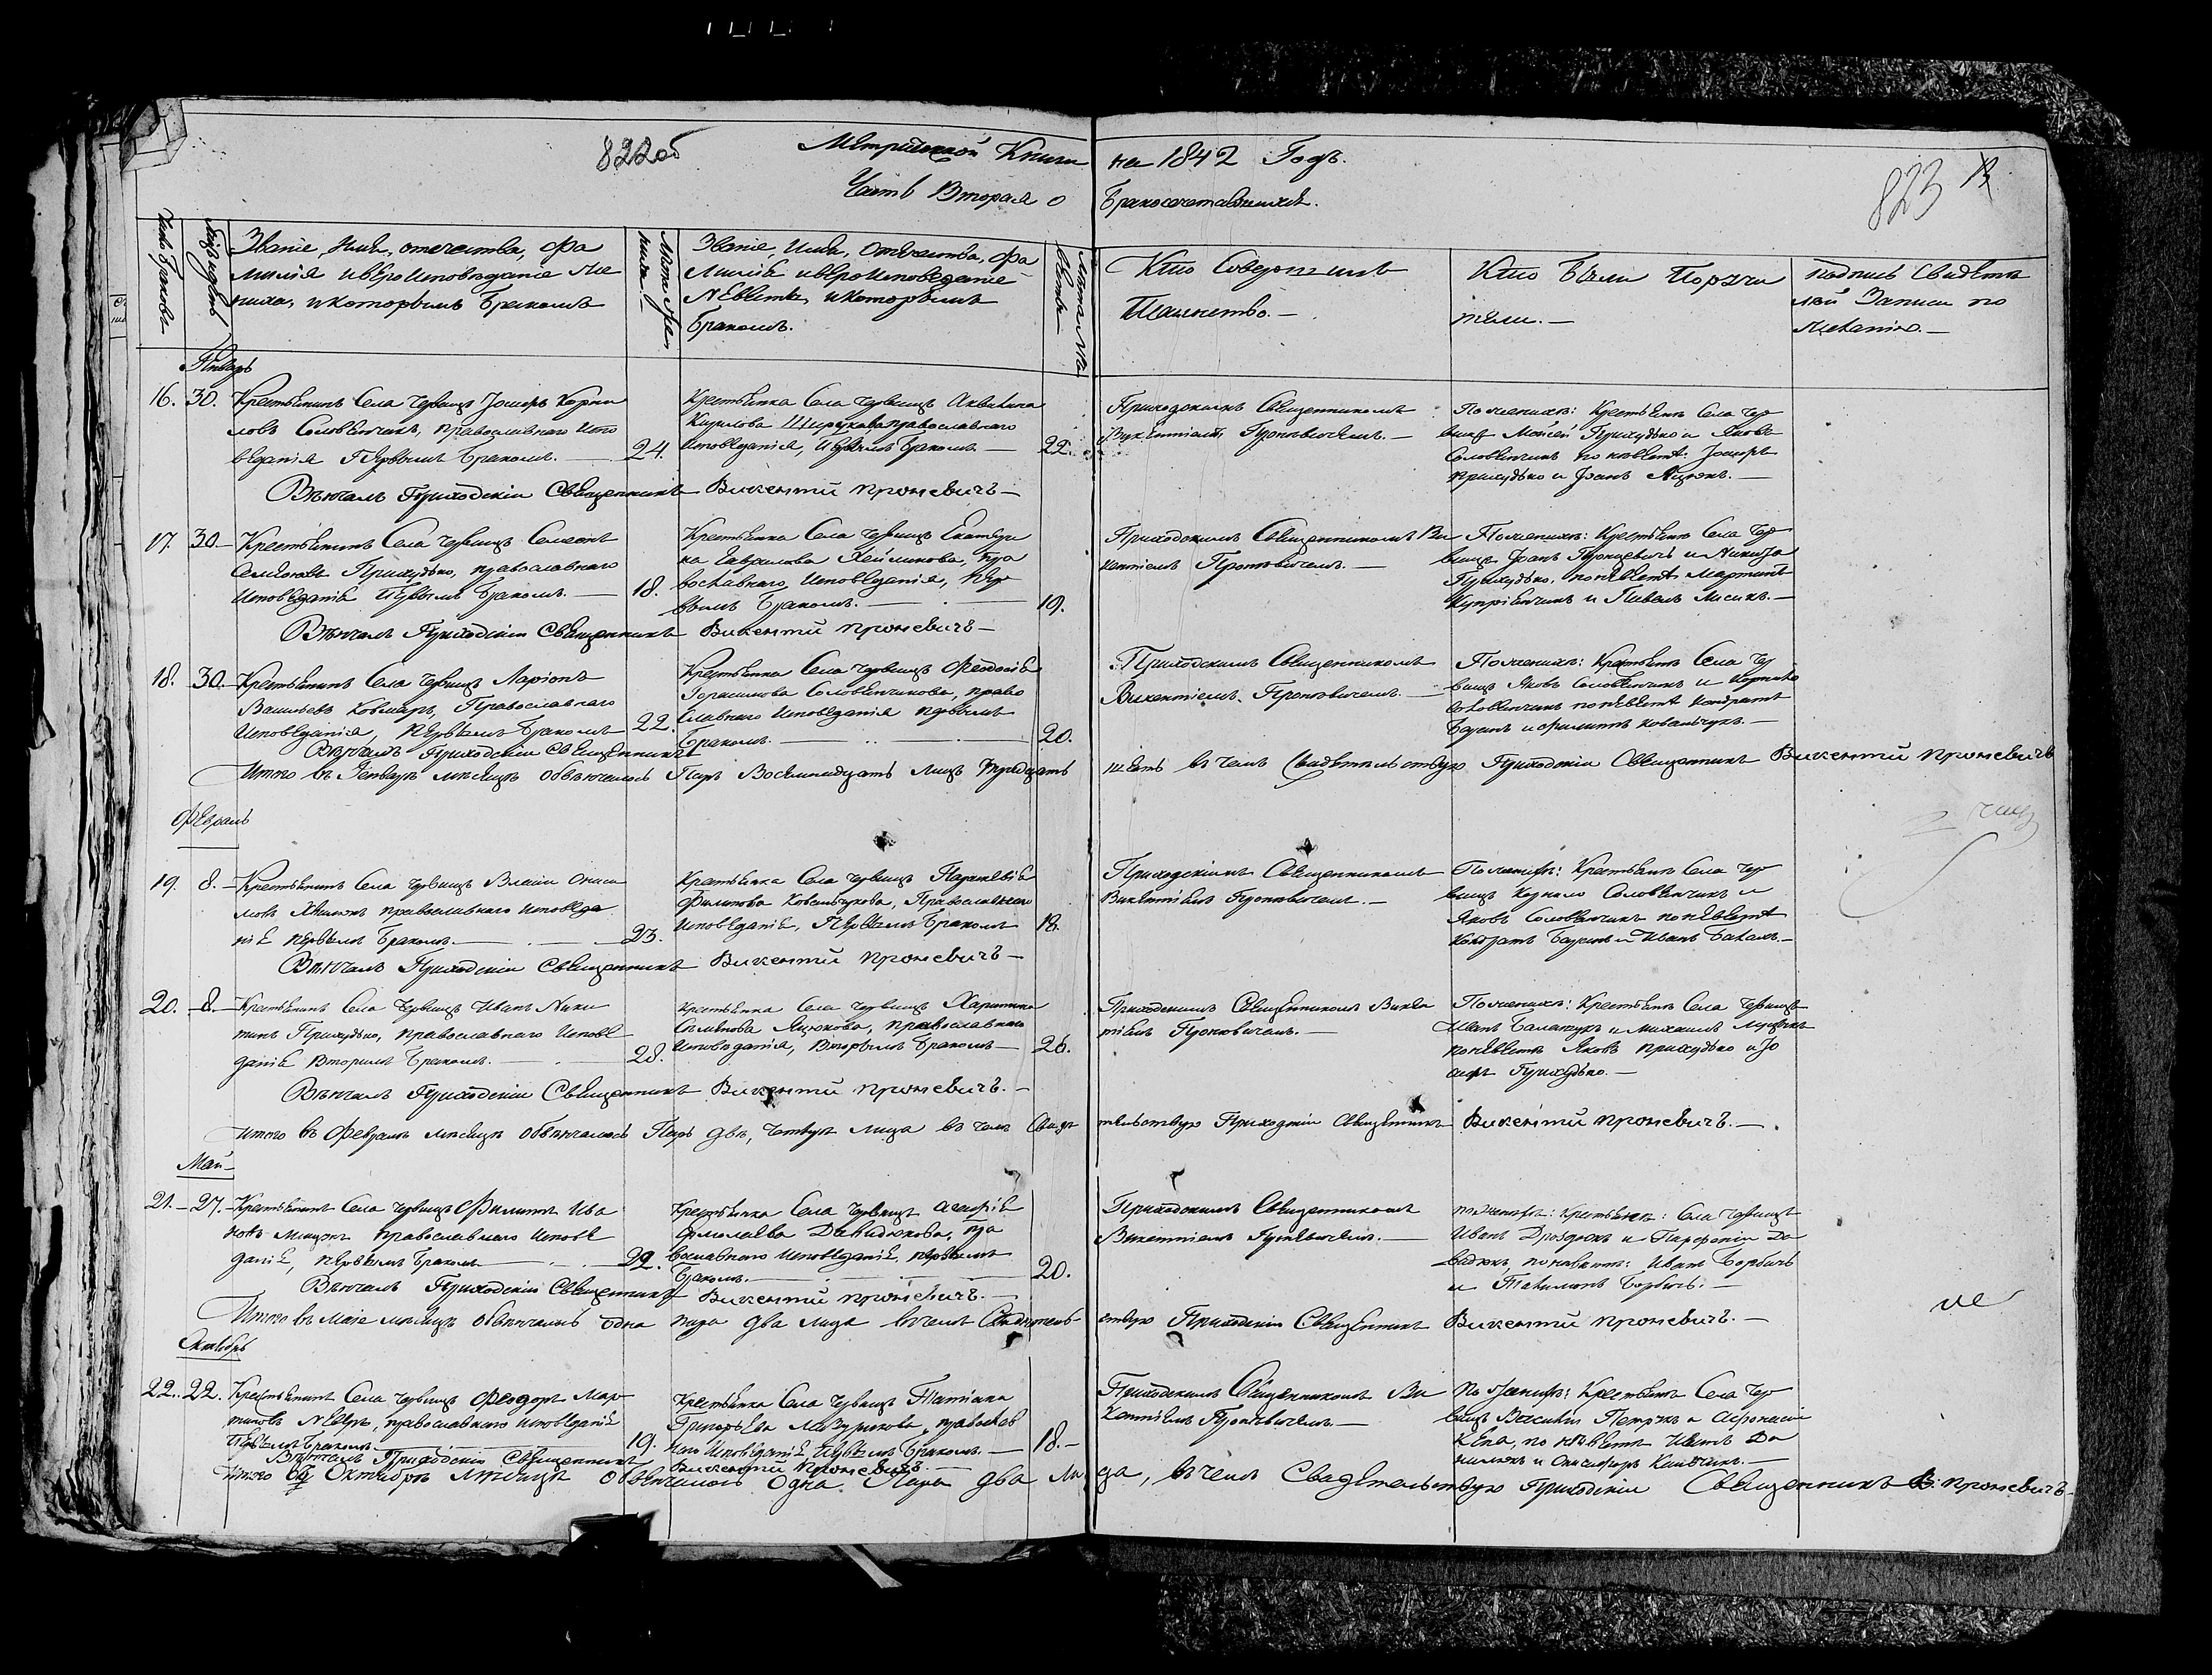 822об
Метрической Книги на 1842 Годъ.
823
Часть Вторая о Бракосочетавшихся.
Число браковъ
Месяцъ и день
Званіе, имя, отечество, фа
милія и вероисповеданіе же
ниха, и которымъ бракомъ
Лета же
ниха
Званіе, имя, отечество, фа
милія и вероисповеданіе
Невесты, и которымъ
бракомъ.
Лета Не
весты
Кто совершилъ
Таинство.—
Кто были поручи
тели.—
подпись свидете
лей записи по
желанію.—
Январь
16. 30. Крестьянинъ Села Червищъ Іосифъ Корни
ловъ Соловянчикъ, православнаго испо
веданія Первымъ бракомъ.— 24.
Крестьянка Села Червищъ Акилина
Кирилова православнаго
исповеданія, первымъ бракомъ— 22.
Приходскимъ Священникомъ
Викентіемъ Проневичемъ.—
По женихе: Крестьяне Села Чер
вищъ Мойсей Прихудько и Яковъ
Соловянчикъ по невесте: Іосифъ
прихудько и Іоанъ Яцюкъ.—
Венчалъ Приходскій Священникъ Викентій Проневичъ—
17. 30.— Крестьянинъ Села Червищъ Симеонъ
Прихудько, православнаго
исповеданія первымъ бракомъ.— 18.
Крестьянка Села Червищъ Екатери
на Гаврилова Хеймикова, пра
вославнаго исповеданія, пер
вымъ бракомъ.— 19.
Приходскимъ Священникомъ Ви
кентіемъ Проневичемъ.—
По женихе: Крестьяне Села Чер
вищъ Іоанъ и Никита
Прихудько, по невесте Мартинъ
Купріянчикъ и Павелъ Лисикъ.—
Венчалъ Приходскій Священникъ Викентій Проневичъ—
18. 30.— Крестьянинъ Села Червищъ Ларіонъ
Васильевъ Православнаго
исповеданія, первымъ бракомъ 22.
Крестьянка Села Червищъ Феодосія
Герасимова Соловянчикова, право
славнаго исповеданія первымъ
бракомъ.— 20.
Приходскимъ Священникомъ
Викентіемъ Проневичемъ.—
По женихе: Крестьяне Села Чер
вищъ Яковъ Соловянчикъ и Корнило
Соловянчикъ по невесте Кондратъ
и Филиппъ Ковальчукъ.—
Венчалъ Приходскій Священникъ
Итого въ Генваре месяце обвенчалось Паръ Восемнадцать лицъ тридцать
шесть въ чемъ свидетельствую Приходскій Священникъ Викентій Проневичъ
Февраль
19. 8.— Крестьянинъ Села Червищъ Власій Ониси
мовъ православнаго исповеда
нія первымъ бракомъ.— 23.
Крестьянка Села Червищъ Параскевія
Филипова Ковальчукова, Православнаго
исповеданія, Первымъ бракомъ 18.
Приходскимъ Священникомъ
Викентіемъ Проневичемъ.—
По женихе: Крестьяне Села Чер
вищъ Корнило Соловянчикъ и
Яковъ Соловянчикъ по невесте
Кондратъ и Иванъ—
Венчалъ Приходскій Священникъ Викентій Проневичъ—
20. 8.— Крестьянинъ Села Червищъ Иванъ Ники
тинъ Прихудько, православнаго испове
данія Вторымъ бракомъ.— 28.
Крестьянка Села Червищъ Харитина
Яцюкова, православнаго
исповеданія, Вторымъ бракомъ— 26.
Приходскимъ Священникомъ Викен
тіемъ Проневичемъ.—
По женихе: Крестьяне Села Червищъ
Иванъ и Михаилъ
по невесте Яковъ прихудько и Іо
сифъ Прихудько.—
Венчалъ Приходскій Священникъ Викентій Проневичъ.—
Итого въ Феврале месяце обвенчалось Паръ две, четыре лица въ чемъ свиде
тельствую Приходскій Священникъ Викентій Проневичъ.—
Май—
21.— 27.— Крестьянинъ Села Червищъ Филипъ Ива
новъ православнаго испове
данія, первымъ бракомъ— 22.
Крестьянка Села Червищъ
Ермолаева Давидюкова, пра
вославнаго исповеданія, первымъ
бракомъ.— 20.
Приходскимъ Священникомъ
Викентіемъ Проневичемъ.—
по женихе: крестьяне: Села Червищъ
Иванъ Дроздюкъ и Парфеній Да
видюкъ, по невесте: Иванъ Борбичъ
и Борбичъ.—
Венчалъ Приходскій Священникъ Викентій Проневичъ.—
Итого въ Маіе месяце обвенчалась одна пара два лица въ чемъ свидетель-
ствую Приходскій Священникъ Викентій Проневичъ.—
Октябрь
22. 22. Крестьянинъ Села Червищъ Феодоръ Мар
тиновъ православнаго исповеданія
первымъ бракомъ— 19.
Крестьянка Села Червищъ Татіана
Григорьева Мазурикова, православ
наго исповеданія первымъ бракомъ.— 18.—
Приходскимъ Священникомъ Ви
кентіемъ Проневичемъ—
По женихе: Крестьяне Села Чер
вищъ Василій Петрукъ и Афанасій
по невесте Иванъ Да
нилюкъ и—
Венчалъ Приходскій Священникъ Викентій Проневичъ—
Итого въ Октябре месяце обвенчалось Одна Пара два ли
ца, въ чемъ Свидетельствую Приходскій Священникъ В: Проневичъ